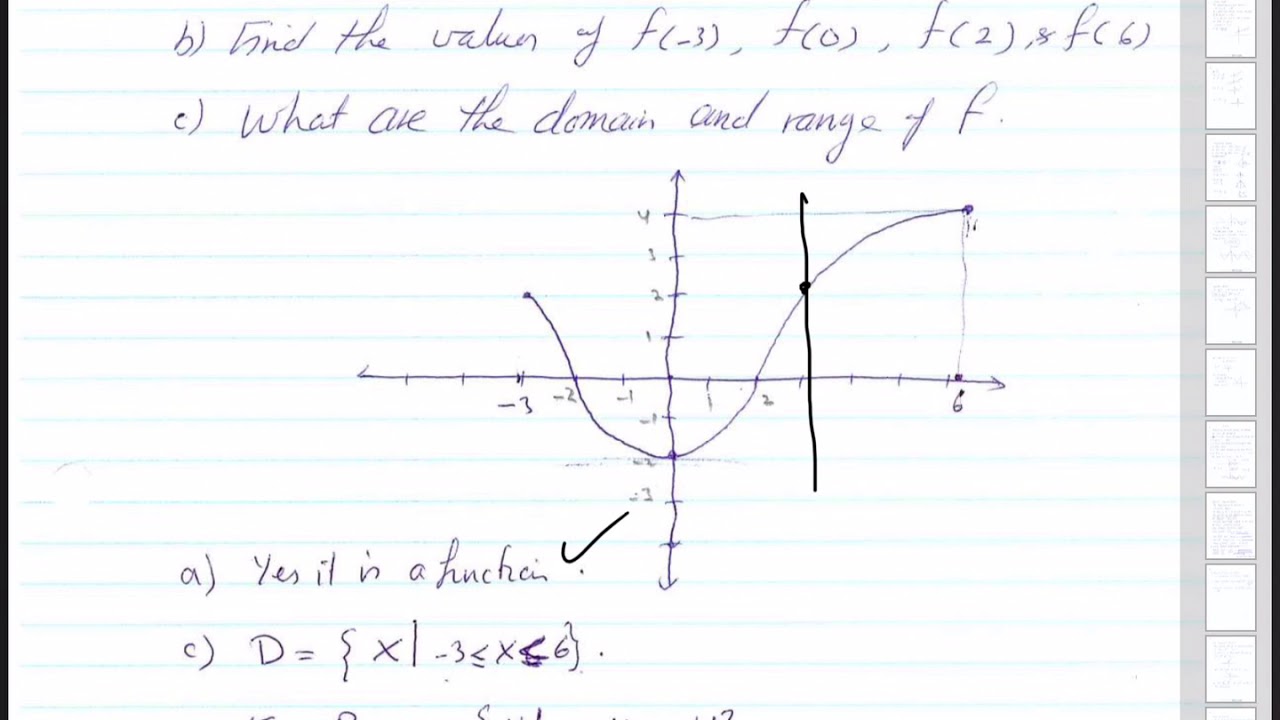 b) Find the values of f(-3), f(0), f(2), & f(6)
c) What are the domain and range of f.
4
3
2
1
-3 -2 -1 1 2 6
-1
-2
-3
a) Yes it is a function.
c) D = { X | -3 ≤ X ≤ 6}.